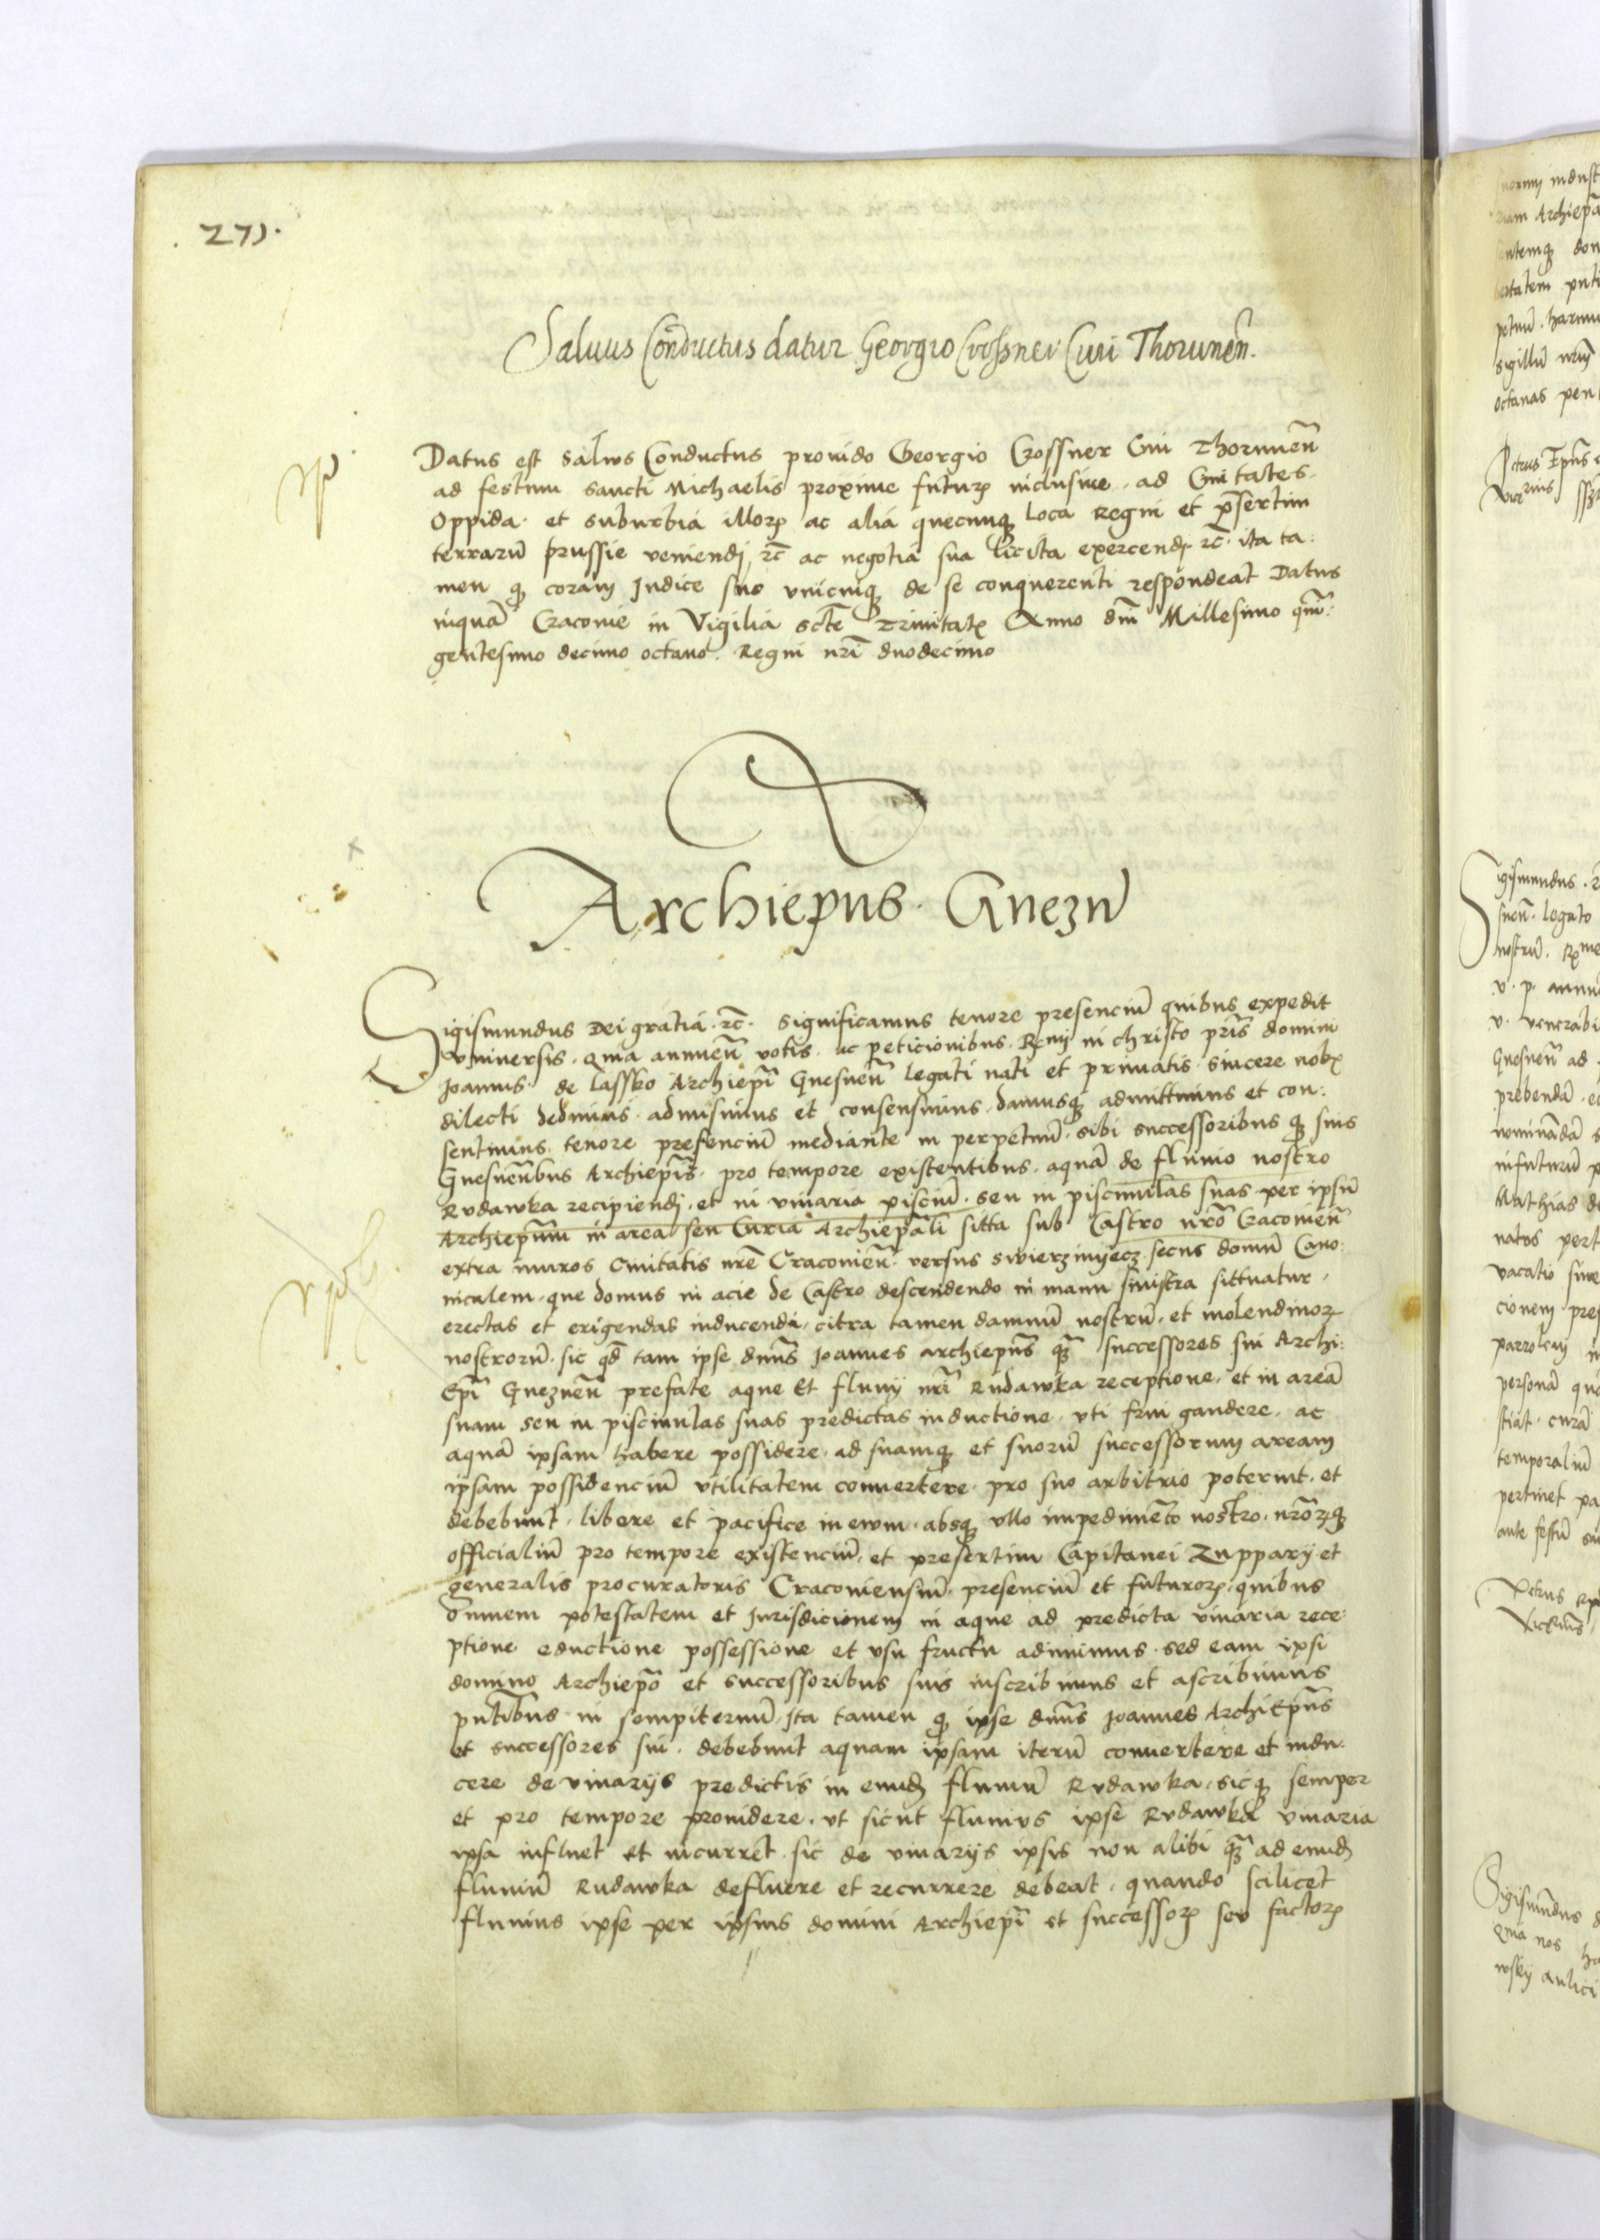 271.
Salvus Conductus datur Georgio Crossner Civi Thorunen̄.
Datus est salvus Conductus provido Georgio Crossner Civi Thorunen̄
ad festum sancti Michaelis proxime futurꝝ inclusive. ad Civitates.
Oppida. et suburbia illorꝝ ac alia quecunqꝫ loca Regni et p̄sertim
terrarū prussie veniendj, ꝛc̄ ac negotia sua licita exercendj ꝛc̄. ita ta:
men qꝫ coram Judice suo unicuiqꝫ de se conquerenti respondeat Datus
inquā Cracovie in Vigilia sctē Trinitatꝭ Anno dm̄ Millesimo qm̄:
gentesimo decimo octavo. Regni nr̄i duodecimo
Archiepus. Gnezn̄
Sigismundus Dei gratia. ꝛc̄. significamus tenore presenciū quibus expedit
universis. Quia annuen̄ votis. ac peticionibus. Rmj in christo pr̄is domini
Joannis. de lassko Archiepī Gnesnen̄ legati nati et primatis. sincere nobꝭ
dilecti dedimus. admisimus et consensimus. damusqꝫ admittimus et con:
sentimus. tenore presenciū mediante in perpetuū. sibi successoribus qꝫ suis
Gnesnen̄bus Archiepīs. pro tempore existentibus. aquā de fluvio nostro
Rudawka recipiendj. et in vivaria pisciū. seu in piscinulas suas per ipsū
Archiepūm in area seu Curia Archiepāli sitta sub Castro nr̄o Cracovien̄
extra muros Civitatis nr̄e Cracovien̄. versus swierzinyecz. secus domū Cano:
nicalem. que domus in acie de Castro descendendo in manu sinistra sittuatur.
erectas et erigendas inducenda. citra tamen damnū nostrū. et molendinorꝝ
nostrorū. sic qd̄ tam ipse dnūs Joannes archiepūs qꝫ̄ successores sui Archi:
Epī Gneznen̄ prefate aque Et fluvij nr̄i Rudawka receptione. et in areā
suam seu in piscinulas suas predictas inductione. uti frui gaudere. ac
aquā ipsam habere possidere. ad suamqꝫ et suorū successorum aream
ipsam possidenciū utilitatem convertere. pro suo arbitrio poterunt. et
debebunt. libere et pacifice in evum. absqꝫ ullo impedimēto nostro. nr̄orꝝqꝫ
officialiū pro tempore existenciū. et presertim Capitanei Zupparij et
generalis procuratoris Cracoviensiū. presenciū et futurorꝝ. quibus
omnem potestatem et Jurisdicionem in aque ad predicta vivaria rece:
ptione eductione possessione et usu fructu adimimus. sed eam ipsi
domino Archiepō et successoribus suis inscribimus et ascribimus
pntībus in sempiternū. Ita tamen qꝫ ipse dnūs Joannes ArchiEpūs
et successores sui. debebunt aquam ipsam iterū convertere et indu:
cere de vivarijs predictis in eundꝫ fluviū Rudawka. sicqꝫ semper
et pro tempore providere. ut sicut fluvius ipse Rudawka vivaria
ipsa influet et incurret. sic de vivarijs ipsis non alibi qꝫ̄ ad eundꝫ
fluviū Rudawka defluere et recurrere debeat. quando scilicet
fluvius ipse per ipsius domini Archiepī et successorꝝ seu factorꝝ